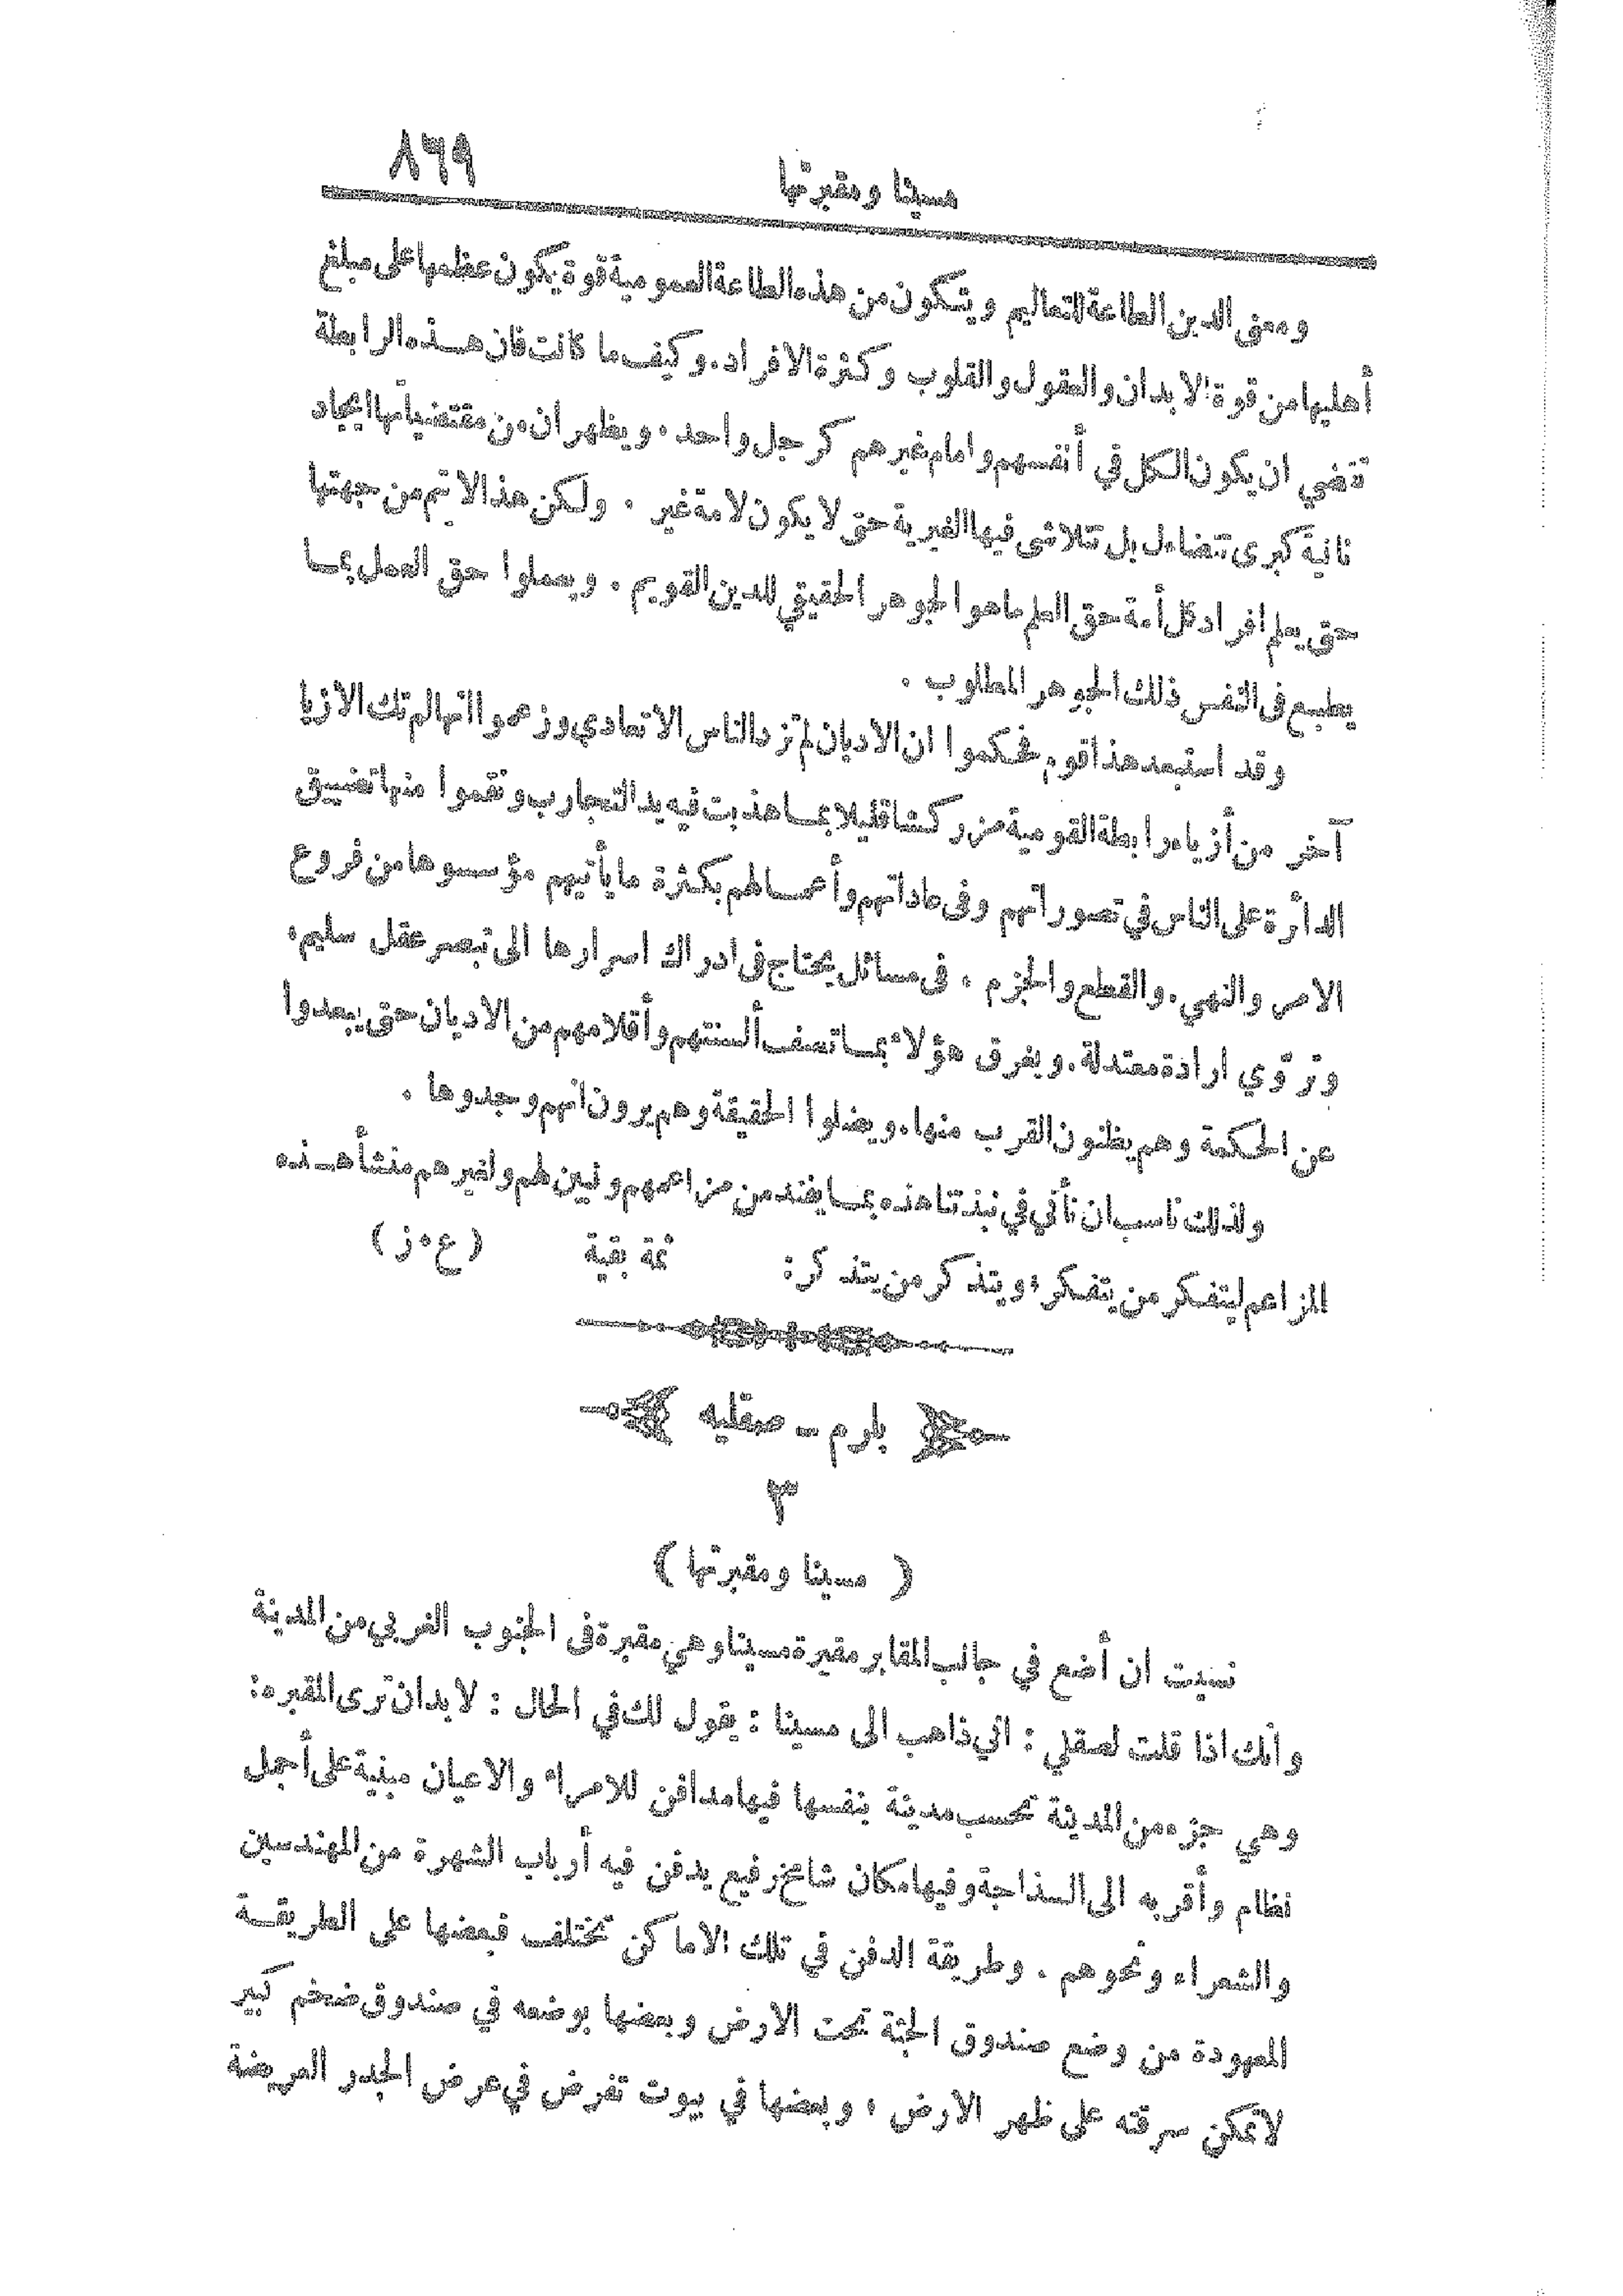 مسينا ومقبرتها ٨٦٩
ومعنى الدين الطاعة للتعاليم ويتكون من هذه الطاعة العمومية قوة يكون عظمها على مبلغ
أهليها من قوة الابدان والعقول والقلوب وكثرة الافراد. وكيف ما كانت فان هذه الرابطة
تقضي ان يكون الكل في أنفسهم وامام غيرهم كرجل واحد. ويظهر ان من مقتضياتها ايجاد
ثانية كبرى تتضاءل بل تتلاشى فيها الغيرية حتى لا يكون لامة غير. ولكن هذا لا يتم من جهتها
حتى يعلم افراد كل أمة حق العلم ما هو الجوهر الحقيقي للدين القويم. ويعملوا حق العمل بما
يطبع في النفس ذلك الجوهر المطلوب.
وقد استبعد هذا قوم فحكموا ان الاديان لم تزد الناس الا تعادي وزعموا انها لم تك الا زيا
آخر من أزياء رابطة القومية مزركشا قليلا بما هذبت فيه يد التجارب ونقموا منها تضييق
الدائرة على الناس في تصوراتهم وفى عاداتهم وأعمالهم بكثرة ما يأتيهم مؤسسوها من فروع
الامر والنهي. والقطع والجزم. فى مسائل يحتاج فى ادراك اسرارها الى تبصر عقل سليم،
وتروي ارادة معتدلة. ويغرق هؤلاء بما تصف ألسنتهم وأقلامهم من الاديان حتى يبعدوا
عن الحكمة وهم يظنون القرب منها، ويضلوا الحقيقة وهم يرون انهم وجدوها.
ولذلك ناسب ان نأتي في نبذتنا هذه بما يفند من مزاعمهم ونبين لهم ولغيرهم منشأ هذه
المزاعم ليتفكر من يتفكر، ويتذكر من يتذكر: ثمة بقية (ع. ز)
بلرم - صقليه
٣
( مسينا ومقبرتها )
نسيت ان أضع في جانب المقابر مقبرة مسينا وهي مقبرة فى الجنوب الغربي من المدينة
وانك اذا قلت لصقلي : اني ذاهب الى مسينا : يقول لك في الحال : لا بد ان ترى المقبره:
وهي جزء من المدينة تحسب مدينة بنفسها فيها مدافن للامراء والاعيان مبنية على أجمل
نظام وأقربه الى السذاجة وفيها مكان شامخ رفيع يدفن فيه أرباب الشهرة من المهندسين
والشعراء ونحوهم. وطريقة الدفن في تلك الاماكن تختلف فبعضها على الطريقة
المعهودة من وضع صندوق الجثة تحت الارض وبعضها بوضعه في صندوق ضخم كبير
لا تمكن سرقته على ظهر الارض، وبعضها في بيوت تفرض في عرض الجدر العريضة